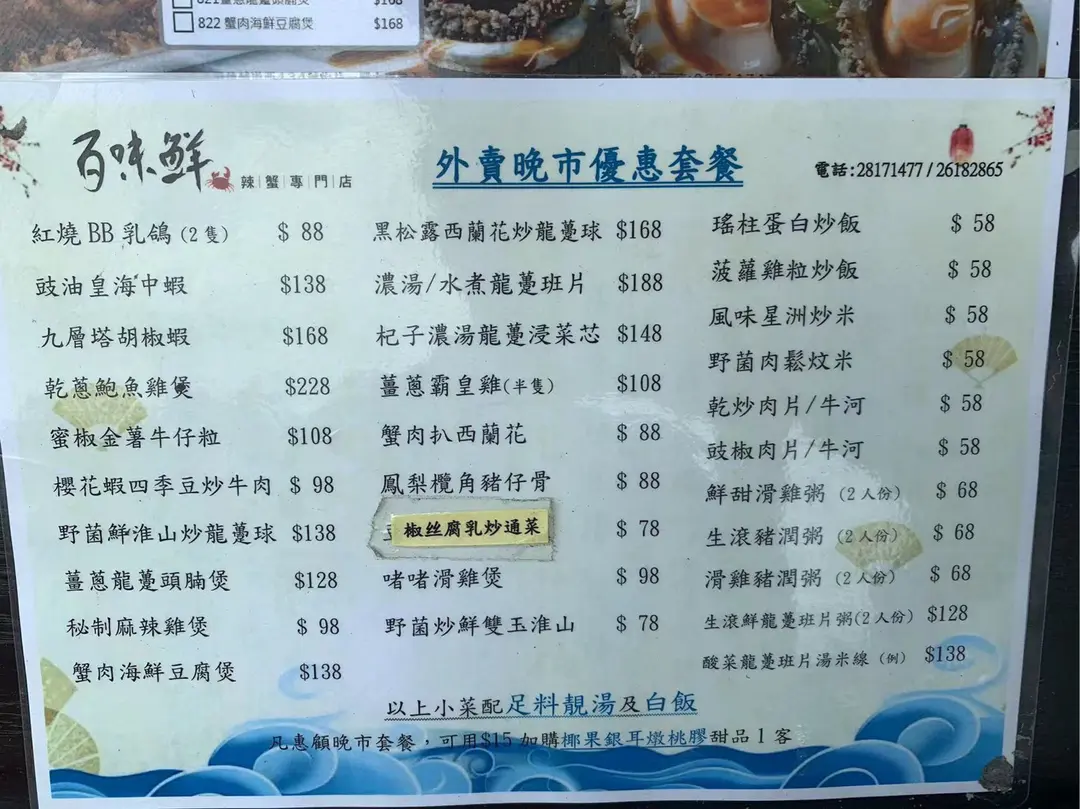 822 蟹肉海鮮豆腐煲 $168
百味鮮
辣蟹專門店
外賣晚市優惠套餐
電話:28171477 / 26182865
紅燒 BB 乳鴿 (2 隻) $ 88
豉油皇海中蝦 $138
九層塔胡椒蝦 $168
乾蔥鮑魚雞煲 $228
蜜椒金薯牛仔粒 $108
櫻花蝦四季豆炒牛肉 $ 98
野菌鮮淮山炒龍躉球 $138
薑蔥龍躉頭腩煲 $128
秘制麻辣雞煲 $ 98
蟹肉海鮮豆腐煲 $138
黑松露西蘭花炒龍躉球 $168
濃湯/水煮龍躉班片 $188
杞子濃湯龍躉浸菜芯 $148
薑蔥霸皇雞(半隻) $108
蟹肉扒西蘭花 $ 88
鳳梨欖角豬仔骨 $ 88
椒丝腐乳炒通菜 $ 78
啫啫滑雞煲 $ 98
野菌炒鮮雙玉淮山 $ 78
瑤柱蛋白炒飯 $ 58
菠蘿雞粒炒飯 $ 58
風味星洲炒米 $ 58
野菌肉鬆炆米 $ 58
乾炒肉片/牛河 $ 58
豉椒肉片/牛河 $ 58
鮮甜滑雞粥 (2 人份) $ 68
生滾豬潤粥 (2 人份) $ 68
滑雞豬潤粥 (2 人份) $ 68
生滾鮮龍躉班片粥(2 人份) $128
酸菜龍躉班片湯米線 (例) $138
以上小菜配足料靚湯及白飯
凡惠顧晚市套餐，可用$15 加購椰果銀耳燉桃膠甜品 1 客